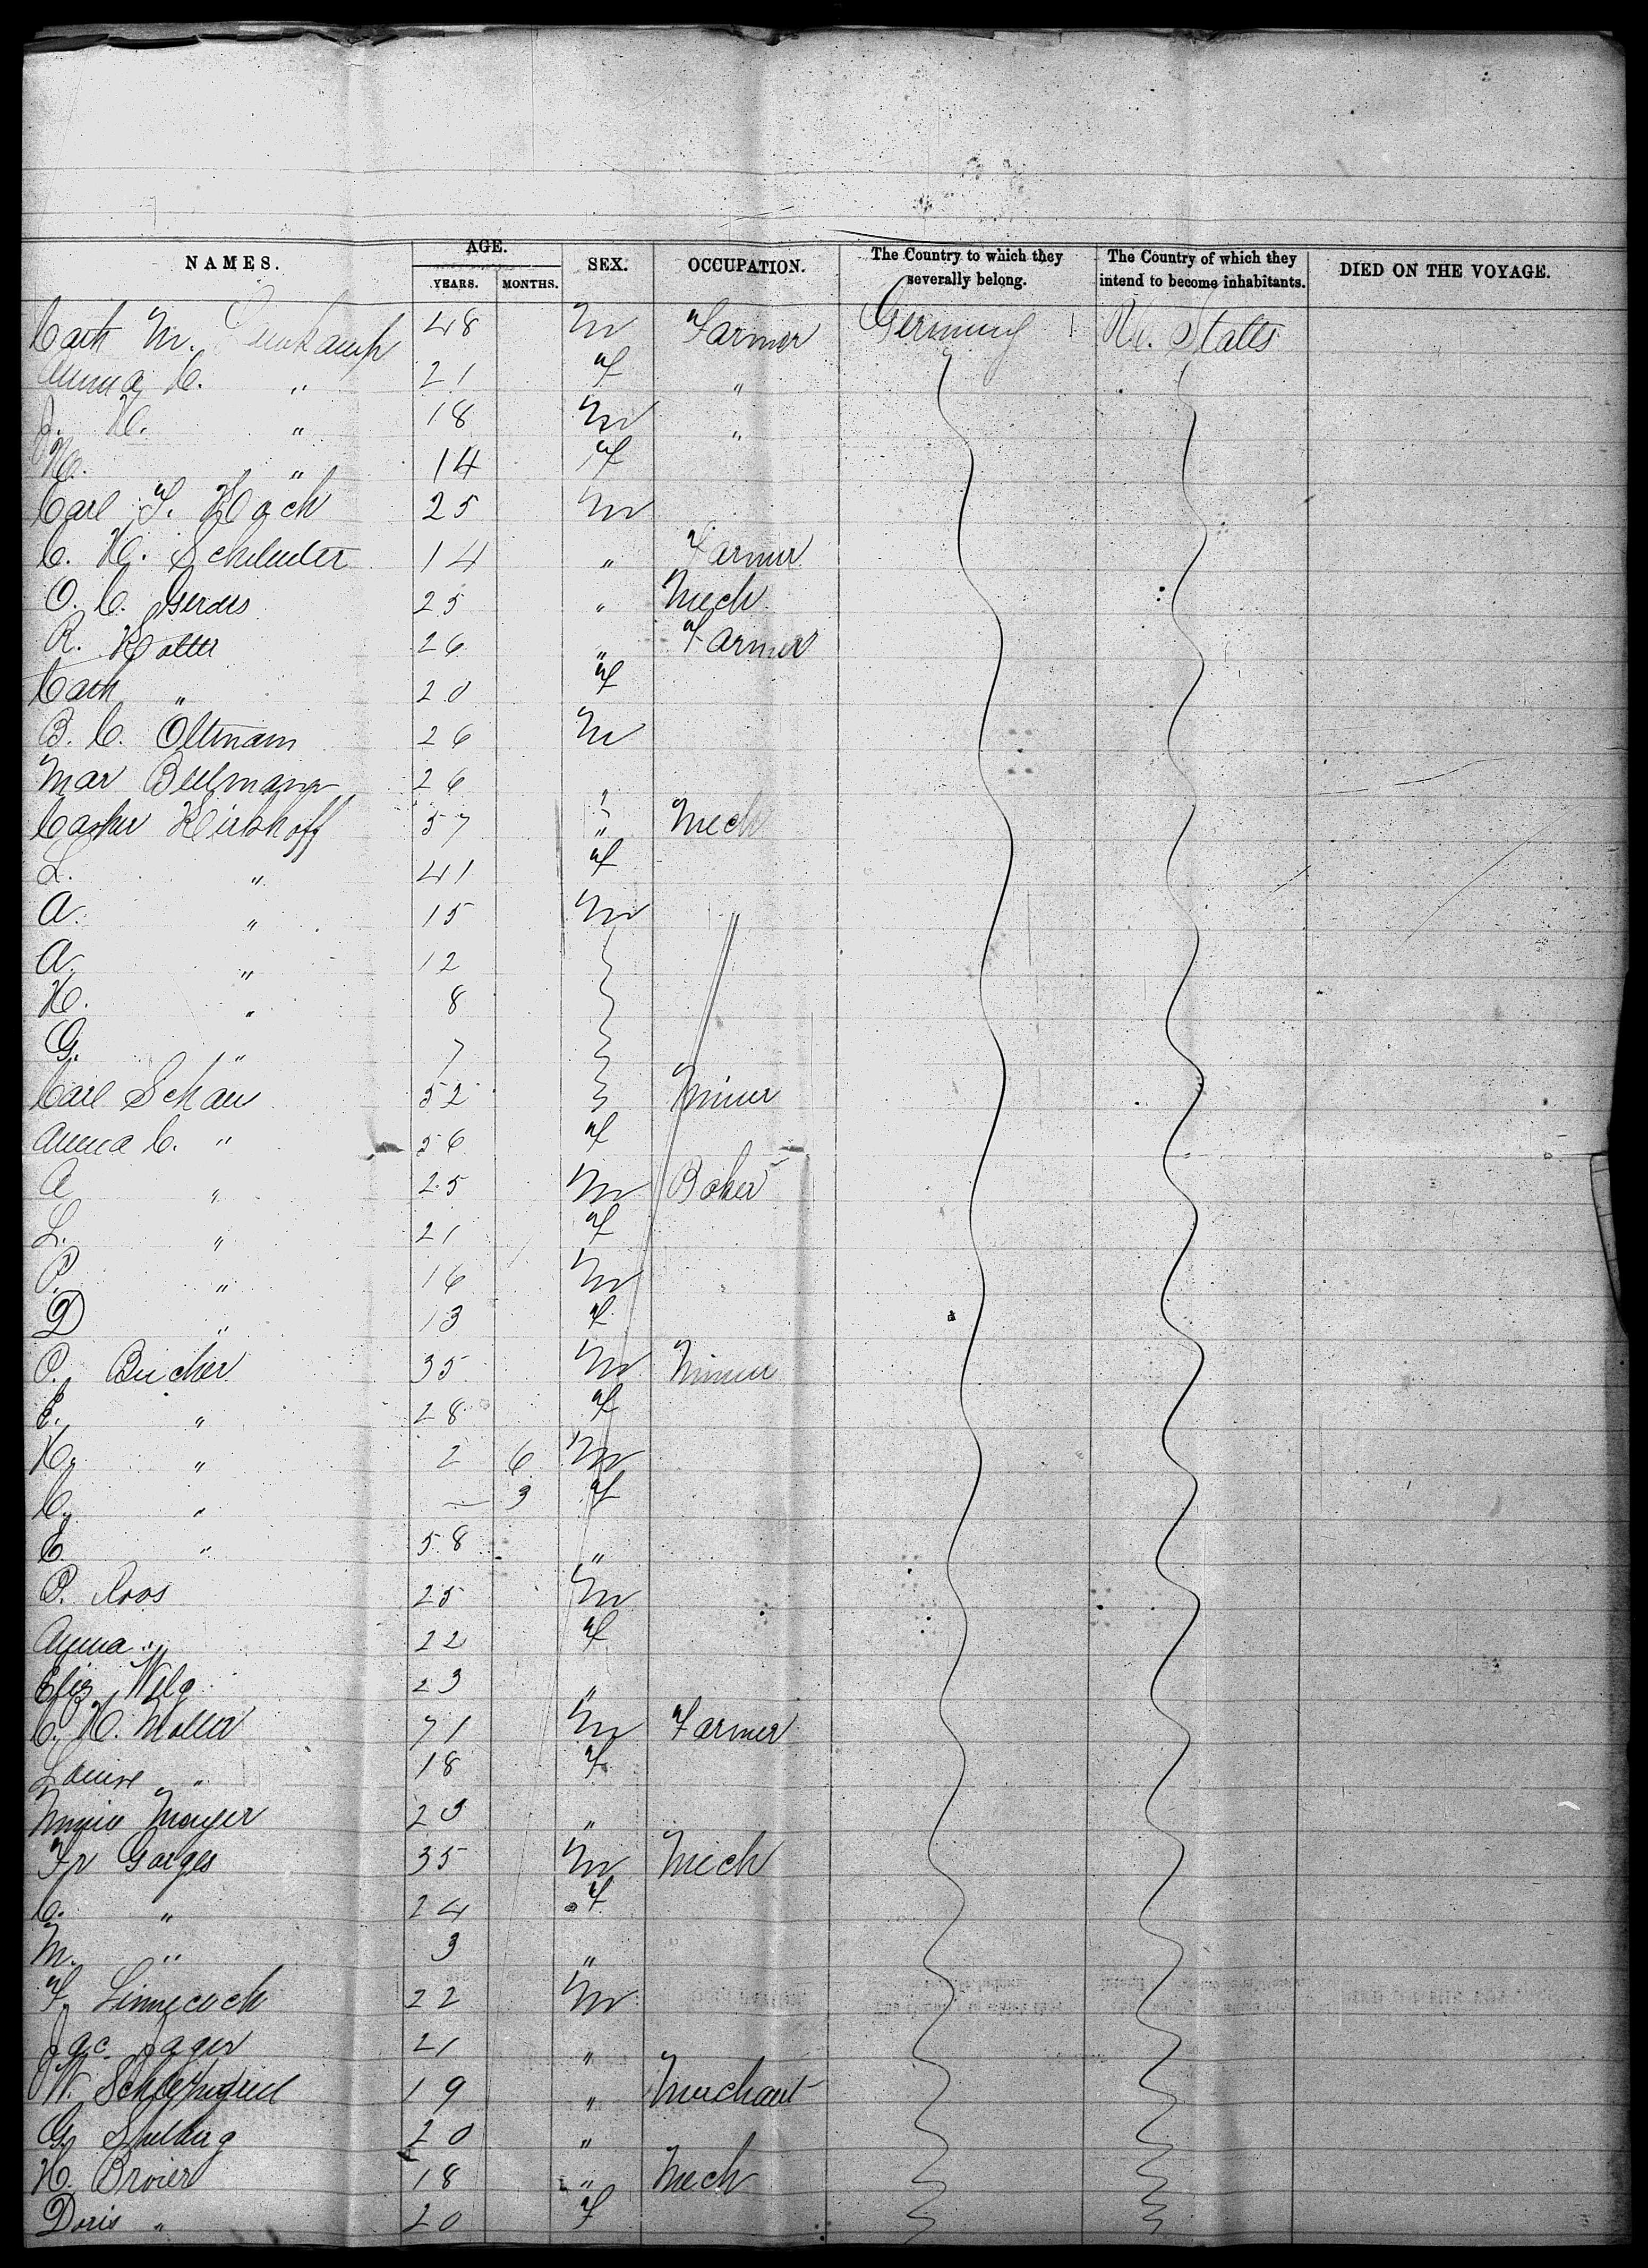 NAMES. AGE. SEX. OCCUPATION. The Country to which they severally belong. The Country of which they intend to become inhabitants. DIED ON THE VOYAGE.
YEARS. MONTHS.
Cath M. 48 M Farmer Germany U. States
Anna C. " 21 f "
J. H. " 18 M "
" 14 f
Carl F. Koch 25 M
C. H. Schluter 14 " Farmer
O. C. Gerdes 25 " Mech
R. 26 " Farmer
Cath " 20 f
B. C. Oltmann 26 M
Mar 26 "
Kirkhoff 57 " Mech
L. " 41 f
A. " 15 M
A. " 12
H. " 8
G. " 7
Carl Schau 52 Miner
Anna C. " 56 f
A " 25 M Baker
L. " 21 f
P. " 16 M
D " 13 f
P. Bucher 35 M Miner
E. " 28 f
H. " 2 6 M
C. " — 3 f
E. " 58 "
P. Roos 25 M
Anna " 22 f
Eliz 23 "
C. H. Moller 71 M Farmer
Louise " 18 f
Mayer 23 "
Fr Gorges 35 M Mech
C. " 24 f
M. " 3 "
F. 22 M
Jac. Jager 21 "
W. 19 " Merchant
G. 20 "
H. 18 " Mech
Doris " 20 F